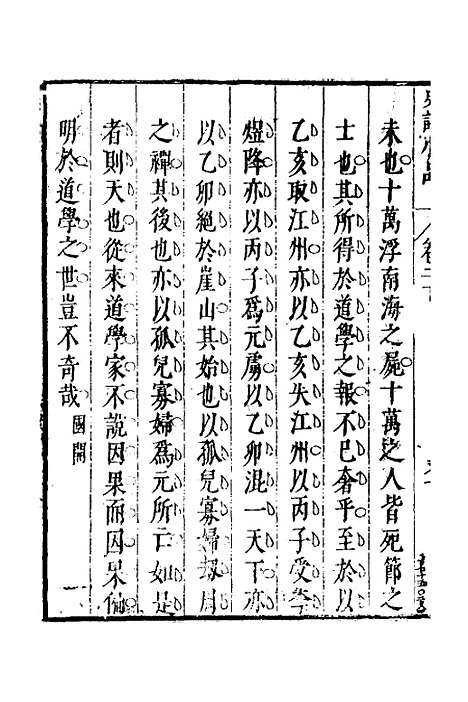 卷二
未也十萬浮南海之屍十萬之人皆死節之
士也其所得於道學之報不已奢乎至於以
乙亥取江州亦以乙亥失江州以丙子受李
煜降亦以丙子爲元虜以乙卯混一天下亦
以乙卯絕於崖山其始也以孤兒寡婦刼周
之禪其後也亦以孤兒寡婦爲元所亡如是
者則天也從來道學家不說因果而因果偏
明於道學之世豈不奇哉 國